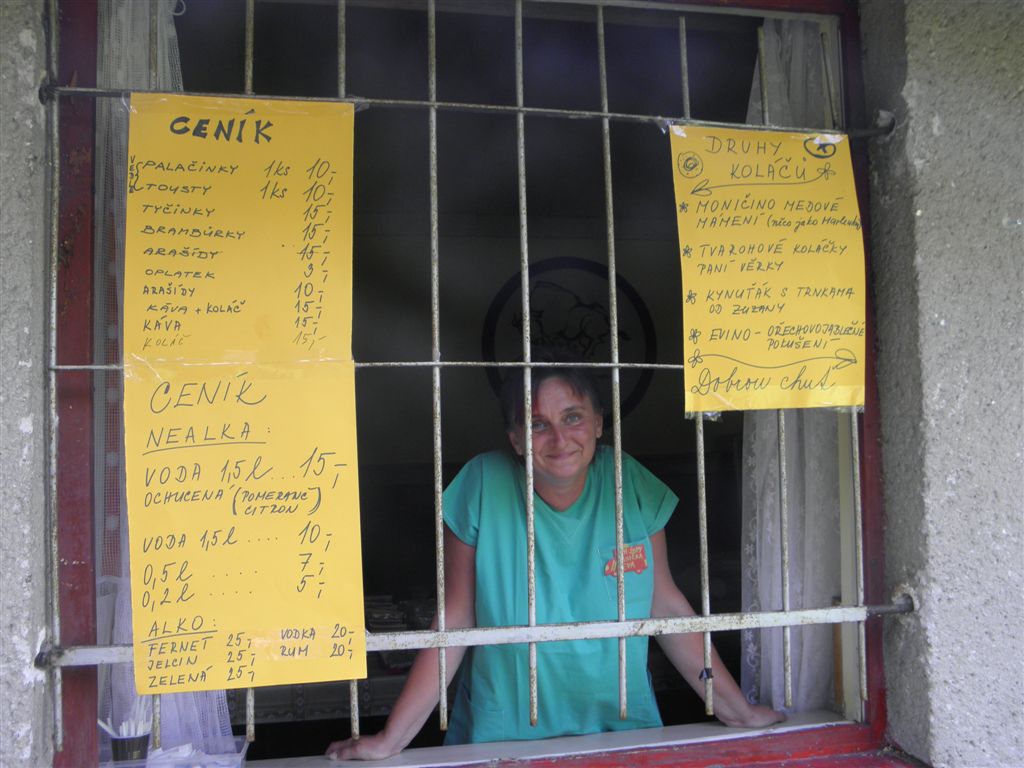 CENÍK
PALAČINKY 1ks 10,-
TOUSTY 1ks 10,-
TYČINKY 15,-
BRAMBŮRKY 15,-
ARAŠÍDY 15,-
OPLATEK 3,-
ARAŠÍDY 10,-
KÁVA + KOLÁČ 15,-
KÁVA 15,-
KOLÁČ 15,-
CENÍK
NEALKA:
VODA 1,5l...15,-
OCHUCENÁ (POMERANČ
CITRON)
VODA 1,5l .... 10,-
0,5l .... 7,-
0,2l .... 5,-
ALKO:
FERNET 25,-
JELCIN 25,-
ZELENÁ 25,-
VODKA 20,-
RUM 20,-
DRUHY
KOLÁČŮ
MONIČINO MEDOVÉ
MÁMENÍ (něco jako Marlenka)
TVAROHOVÉ KOLÁČKY
PANÍ VĚRKY
KYNUŤÁK S TRNKAMA
OD ZUZANY
EVINO - OŘECHOVOJABLEČNÉ
POKUŠENÍ
Dobrou chuť